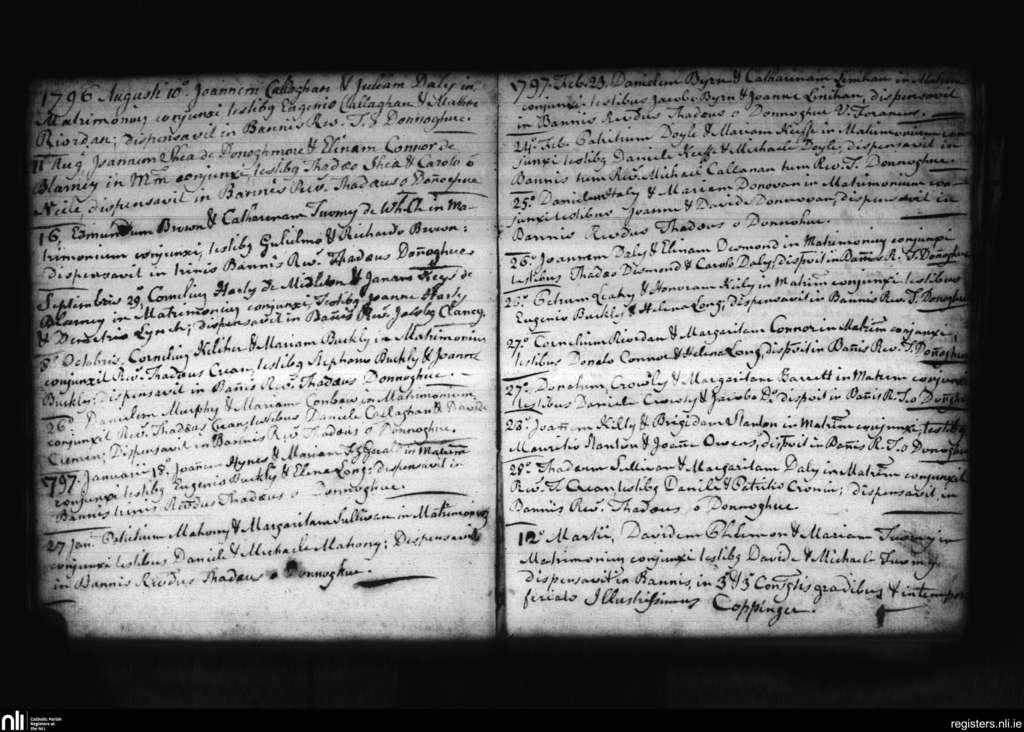 1796 Augusti 10º. Joannem Callaghan & Juliam Daly in
Matrimoniũ conjunxi testibq Eugenio Callaghan & Matheo
Riordan; dispensavit in Banniis Rev. T. O Donnoghue.
11 Aug. Joannem Shea de Donoghmore & Elinam Connor de
Blarney in Mm conjunxi, testibq Thadæo Shea & Carolo o
Neile, dispensavit in Bannis Rev. Thadæus o Donoghue
16 Edmundum Brown & Catharinam Twomy de Wh. Ch. in Ma-
trimonium conjunxi, testibq Gulielmo & Richardo Brown:
dispensavit in trinis Bannis Rev. Thadæus Donnoghue
Septembris 29, Cornelium Harty de Midleton & Keys de
Blarney in Matrimoniũ conjunxi, testibq Joanne Harty
& Demetrio Lynch; dispensavit in Bañis Rev. Jacobq Clancy.
8º Octobris, Cornelium Keliher & Mariam Buckly in Matrimoniũ
conjunxit Rev. Thadæus Crean, testibq Stephano Buckly & Joanne
Buckley; dispensavit in Bañis Rev. Thadæus Donnoghue.
26º. Danielem Murphy & Mariam in Matrimonium
conjunxit Rev. Thadæus Crean, testibus Daniele Callaghan & Davide
Dispensavit in Bannis Rev Thadæus O Donnoghue.
1797. Januarii 18. Joañem Hynes & Mariam FzGerald in Matrim
conjunxi testibq Eugenio Buckly & Elena Long: dispensavit in
Bannis trinis Revdus Thadæus o Donnoghue.
27 Jan. Patritium Mahony & Margaritam Sullivan in Matrimoniũ
conjunxi testibus Daniele & Michaele Mahony; Dispensavit
in Bannis Revdus Thadæus o Donnoghue.
1797. Feb. 23. Danielem Byrn & Catharinam Linihan in Matrim
conjunxi. testibus Jacobo Byrn & Joanne Linihan, dispensavit
in Bannis Revdus Thadæus o Donnoghue V. Foraneus.
24º. Feb. Patritium Doyle & Mariam Keiffe in Matrimonium con-
junxi testibq Daniele Keiffe & Michaele Doyle; dispensavit in
Bannis tum Rev. Michael Callanan tum Rev. T. Donnoghue.
25º. Danielem & Mariam Donovan in Matrimonium con-
junxi testibus Joanne & Davide Donnovan, dispensavit in
Bannis Revdus Thadæus o Donnohue.
26º. Joannem Daly & Elinam Desmond in Matrimoniũ conjunxi
testibus Thadæo Dismond & Carolo Daly, dispsvit in Bañis R. T. Doñoghue
26º. Petrum Leahy & Honoram Kiely in Matrim conjunxi testibus
Eugenio Buckley & Helena Long; Dispensavit in Bannis Rev. T. Donoghue
27º. Cornelium Riordan & Margaritam Connor in Matrim conjunxi
testibus Donato Connor & Helena Long, dispsvit in Bañis Rev. T. Doñoghue
27º. Donatum Crowly & Margaritam Barrett in Matrim conjunxi
testibus Daniele Crowly & Jacobo Do. dispsvit in Bañis R. T. o Doñghue
28º. Joañem Kilty & Brigidam Stanton in Matrim conjunxi, testibq
Mauritio Stanton & Joañe Owens, dispsvit in Bañis R. T. o Donoghue
28º. Thadæum Sullivan & Margaritam Daly in Matrim conjunxit
Rev. T. Crean testibq Daniele & Patritio Cronin; dispensavit, in
Bannis Rev. Thadæus o Donnoghue
12º Martii, Davidem & Mariam Twomy in
Matrimonium conjunxi testibq Davide & Michaele Twomy
dispensavit in Bannis, in 3 & 3 Consgtis gradibus & in tempore
feriato Illustrissimus Coppinger.
nli
Catholic Parish
Registers at
the NLI
registers.nli.ie